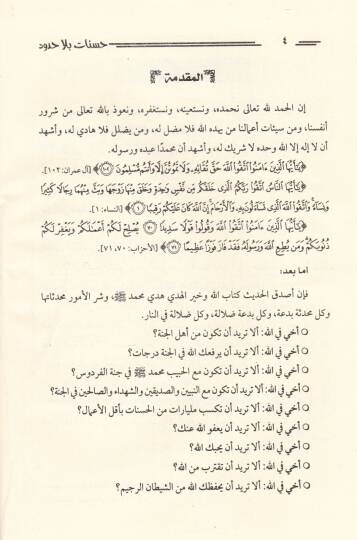 ٤ حسنات بلا حدود
المقدمة
إن الحمد لله تعالى نحمده، ونستعينه، ونستغفره، ونعوذ بالله تعالى من شرور
أنفسنا، ومن سيئات أعمالنا من يهده الله فلا مضل له، ومن يضلل فلا هادي له، وأشهد
أن لا إله إلا الله وحده لا شريك له، وأشهد أن محمدًا عبده ورسوله.
﴿يَٰٓأَيُّهَا ٱلَّذِينَ ءَامَنُوا۟ ٱتَّقُوا۟ ٱللَّهَ حَقَّ تُقَاتِهِۦ وَلَا تَمُوتُنَّ إِلَّا وَأَنتُم مُّسْلِمُونَ ﴿١٠٢﴾﴾ [آل عمران: ١٠٢].
﴿يَٰٓأَيُّهَا ٱلنَّاسُ ٱتَّقُوا۟ رَبَّكُمُ ٱلَّذِى خَلَقَكُم مِّن نَّفْسٍ وَٰحِدَةٍ وَخَلَقَ مِنْهَا زَوْجَهَا وَبَثَّ مِنْهُمَا رِجَالًا كَثِيرًا
وَنِسَآءً وَٱتَّقُوا۟ ٱللَّهَ ٱلَّذِى تَسَآءَلُونَ بِهِۦ وَٱلْأَرْحَامَ إِنَّ ٱللَّهَ كَانَ عَلَيْكُمْ رَقِيبًا ﴿١﴾﴾ [النساء: ١].
﴿يَٰٓأَيُّهَا ٱلَّذِينَ ءَامَنُوا۟ ٱتَّقُوا۟ ٱللَّهَ وَقُولُوا۟ قَوْلًا سَدِيدًا ﴿٧٠﴾ يُصْلِحْ لَكُمْ أَعْمَٰلَكُمْ وَيَغْفِرْ لَكُمْ
ذُنُوبَكُمْ وَمَن يُطِعِ ٱللَّهَ وَرَسُولَهُۥ فَقَدْ فَازَ فَوْزًا عَظِيمًا ﴿٧١﴾﴾ [الأحزاب: ٧٠، ٧١].
أما بعد:
فإن أصدق الحديث كتاب الله وخير الهدي هدي محمد ﷺ، وشر الأمور محدثاتها
وكل محدثة بدعة، وكل بدعة ضلالة، وكل ضلالة في النار.
○ أخي في الله: ألا تريد أن تكون من أهل الجنة؟
○ أخي في الله: ألا تريد أن يرفعك الله في الجنة درجات؟
○ أخي في الله: ألا تريد أن تكون مع الحبيب محمد ﷺ في جنة الفردوس؟
○ أخي في الله: ألا تريد أن تكون مع النبيين والصديقين والشهداء والصالحين في الجنة؟
○ أخي في الله: ألا تريد أن تكسب مليارات من الحسنات بأقل الأعمال؟
○ أخي في الله: ألا تريد أن يعفو الله عنك؟
○ أخي في الله: ألا تريد أن يحبك الله؟
○ أخي في الله: ألا تريد أن تقترب من الله؟
○ أخي في الله: ألا تريد أن يحفظك الله من الشيطان الرجيم؟